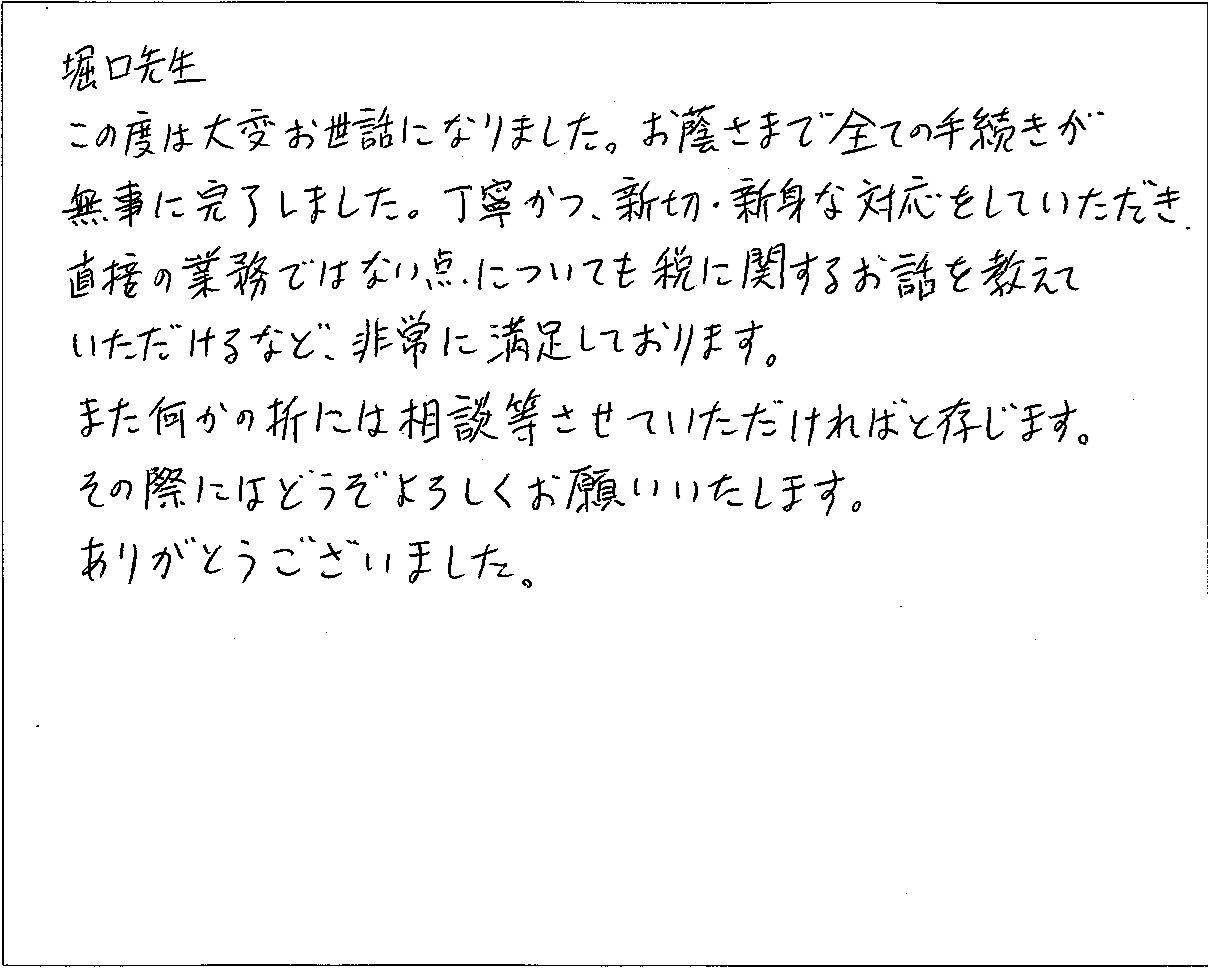 堀口先生
この度は大変お世話になりました。お蔭さまで全ての手続きが
無事に完了しました。丁寧かつ、新切・新身な対応をしていただき、
直接の業務ではない点についても税に関するお話を教えて
いただけるなど、非常に満足しております。
また何かの折には相談等させていただければと存じます。
その際にはどうぞよろしくお願いいたします。
ありがとうございました。